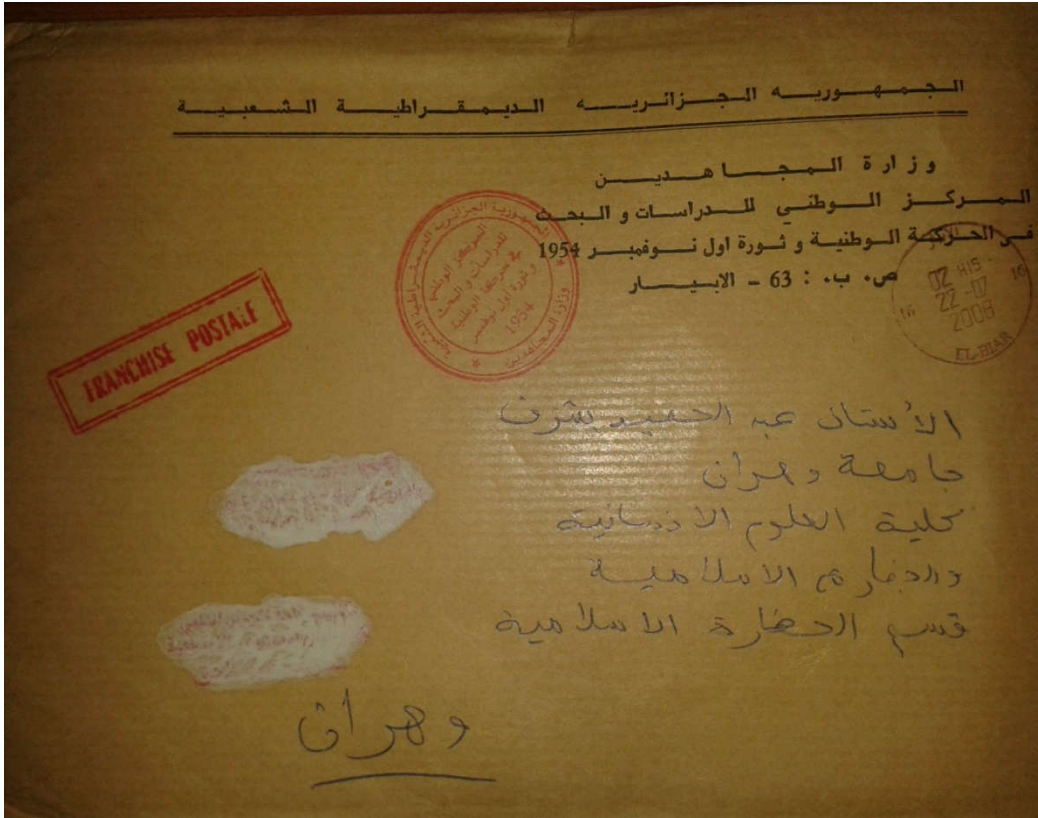 الجمهوريه الجزائريه الديمقراطية الشعبية
وزارة المجاهدين
المركز الوطني للدراسات و البحث
في الحركة الوطنية و ثورة اول نوفمبر 1954
ص. ب. : 63 - الابيار
الجمهورية الجزائرية الديمقراطية الشعبية
وزارة المجاهدين
المركز الوطني
للدراسات و البحث
في الحركة الوطنية
و ثورة اول نوفمبر
1954
16
16
02 H15
22-07
2008
EL-BIAR
FRANCHISE POSTALE
الأستاذ عبد الحميد بشرف
جامعة وهران
كلية العلوم الانسانية
والحضارة الاسلامية
قسم الحضارة الاسلامية
وهران